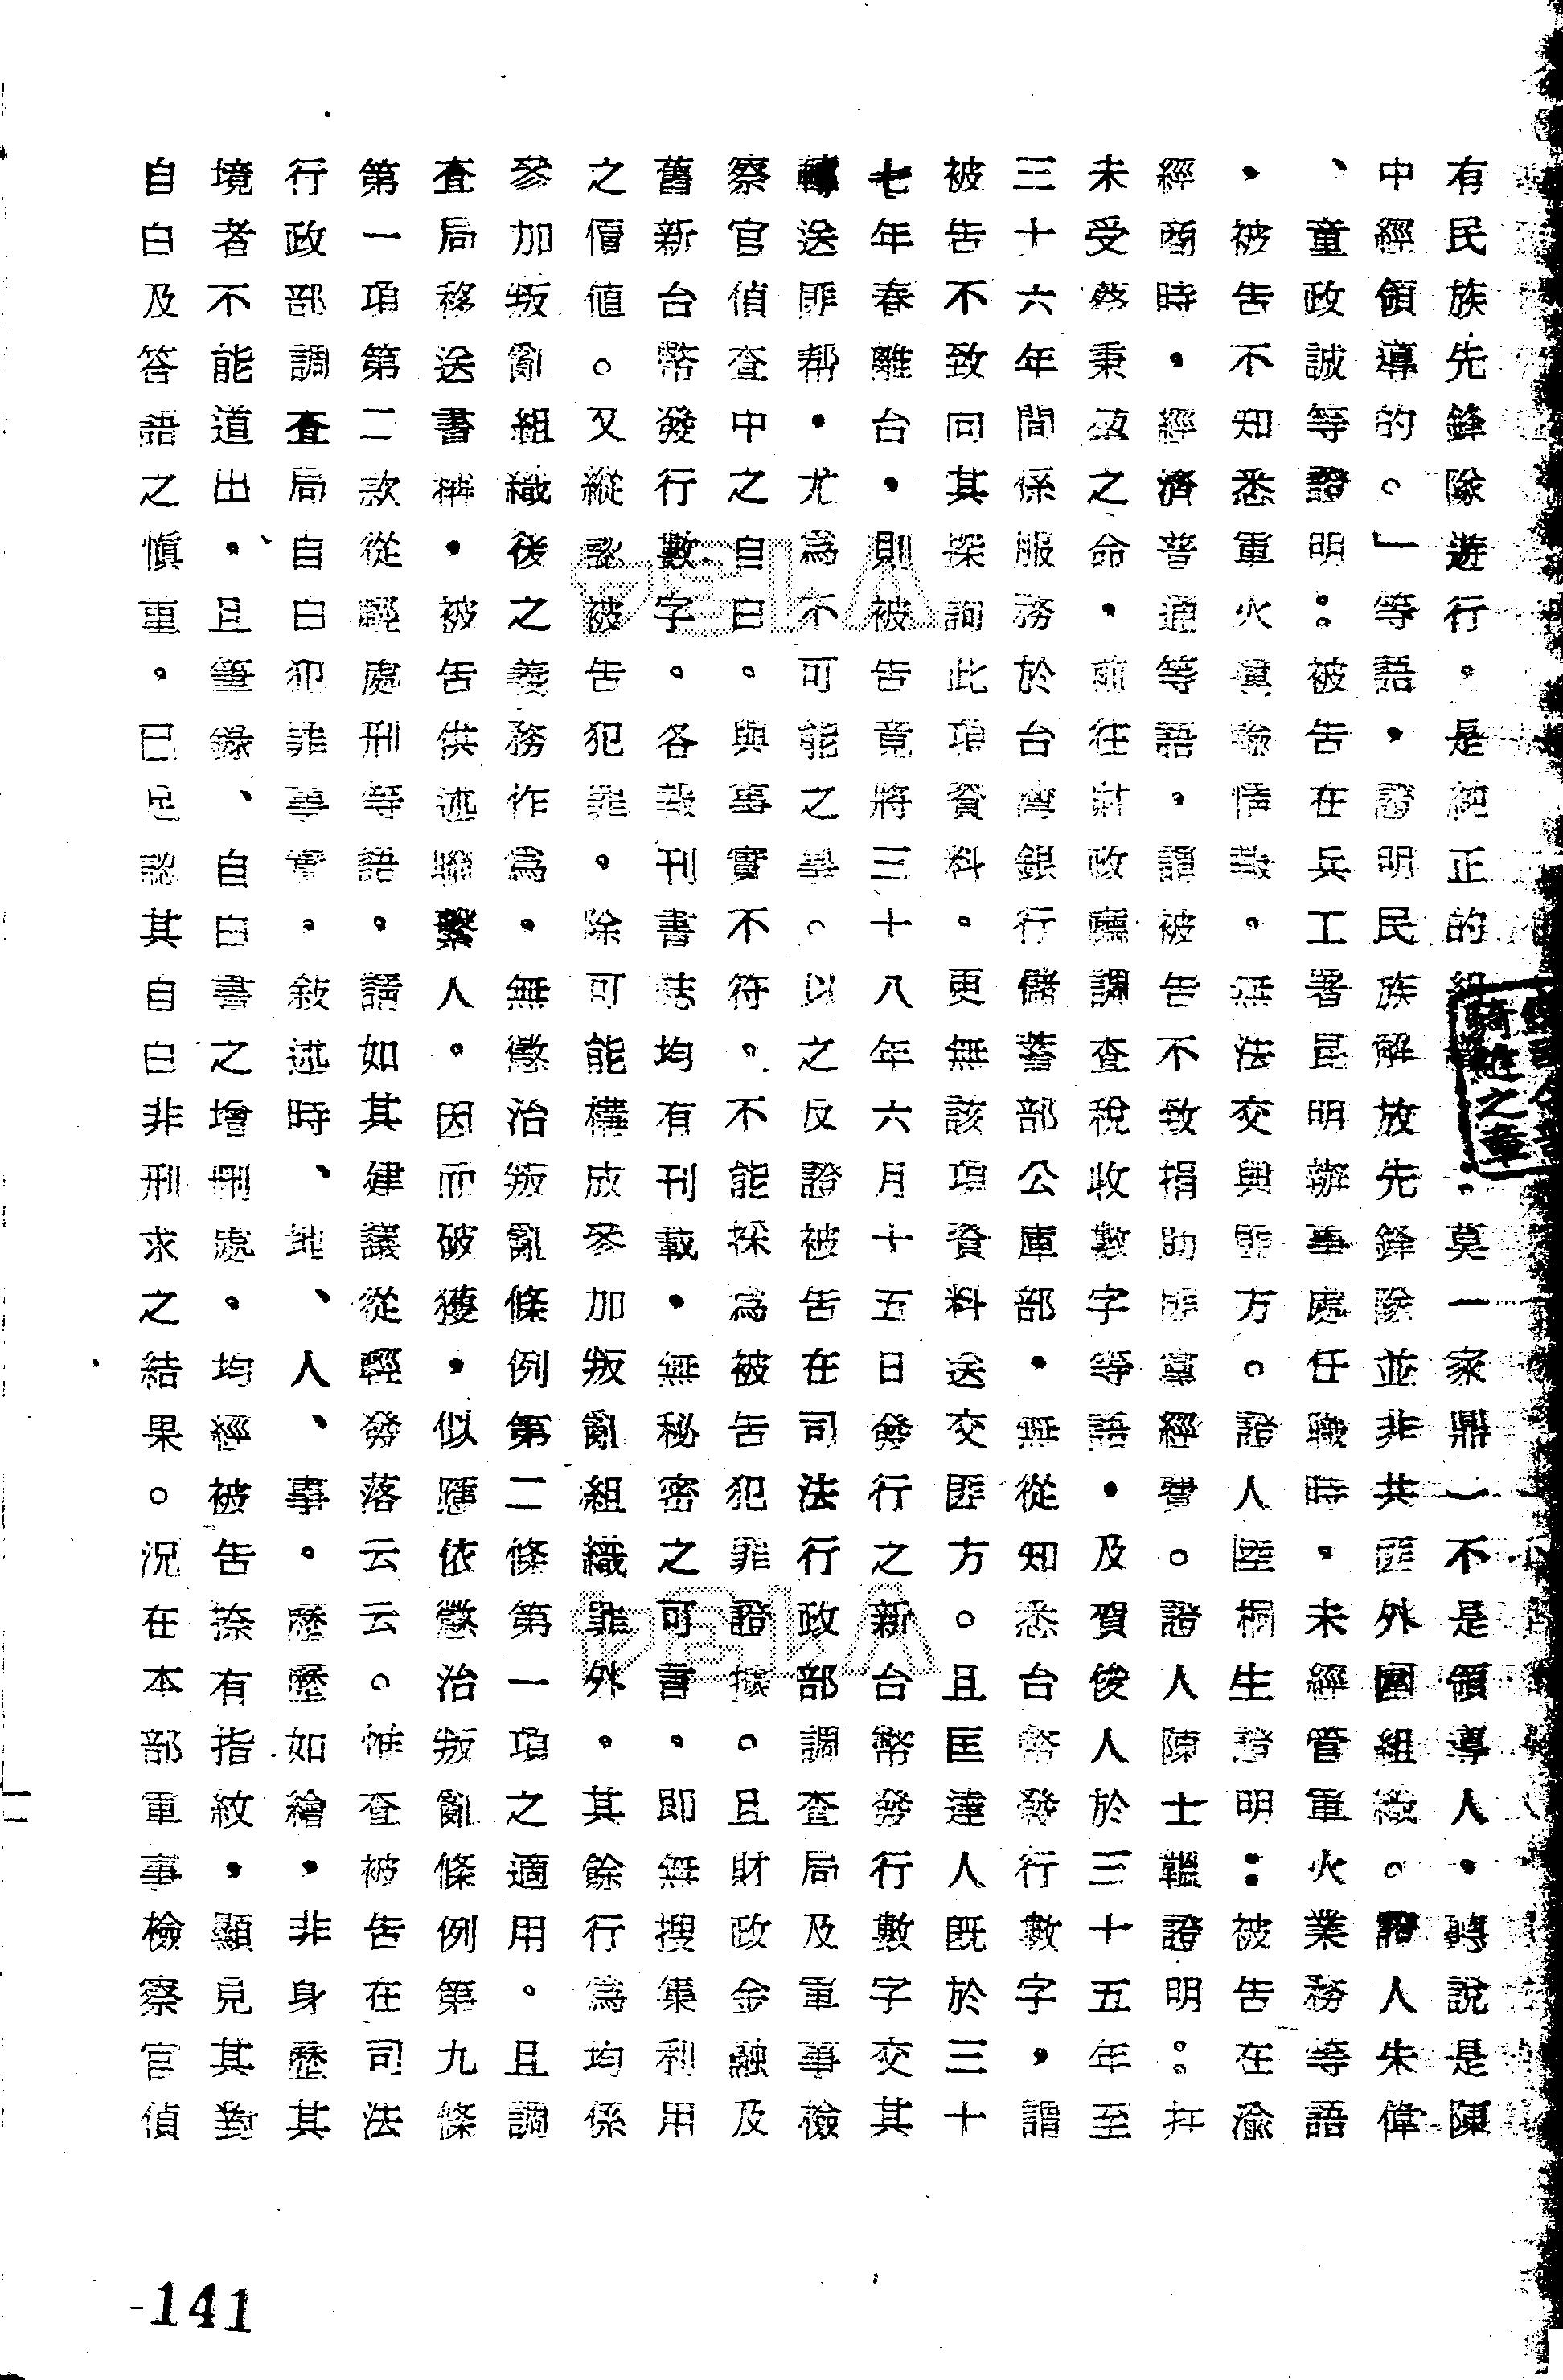 有民族先鋒隊遊行。是純正的組織。莫一家鼎一不是領導人，聽說是陳
中經領導的。」等語，證明民族解放先鋒隊並非共匪外圍組織。證人朱偉
、童政誠等證明：被告在兵工署昆明辦事處任職時，未經管軍火業務等語
，被告不知悉軍火眞確情報。無法交與匪方。證人陸桐生證明：被告在渝
經商時，經濟普通等語，謂被告不致捐助匪黨經費。證人陳士韞證明：在
未受蔡秉及之命，前往財政廳調查稅收數字等語，及賀俊人於三十五年至
三十六年間係服務於台灣銀行儲蓄部公庫部，無從知悉台幣發行數字，謂
被告不致向其探詢此項資料。更無該項資料送交匪方。且匡達人既於三十
七年春離台，則被告竟將三十八年六月十五日發行之新台幣發行數字交其
轉送匪帮，尤為不可能之事。以之反證被告在司法行政部調查局及軍事檢
察官偵查中之自白。與事實不符。不能採為被告犯罪證據。且財政金融及
舊新台幣發行數字。各報刊書誌均有刊載，無秘密之可言，即無搜集利用
之價值。又縱認被告犯罪，除可能構成參加叛亂組織罪外，其餘行為均係
參加叛亂組織後之義務作為，無懲治叛亂條例第二條第一項之適用。且調
查局移送書稱，被告供述聯繫人。因而破獲，似應依懲治叛亂條例第九條
第一項第二款從輕處刑等語。請如其建議從輕發落云云。惟查被告在司法
行政部調查局自白犯罪事實，敍述時、地、人、事。歷歷如繪，非身歷其
境者不能道出，且筆錄、自白書之增刪處。均經被告捺有指紋，顯見其對
自白及答語之愼重。已足認其自白非刑求之結果。況在本部軍事檢察官偵
騎縫之章
一一
141